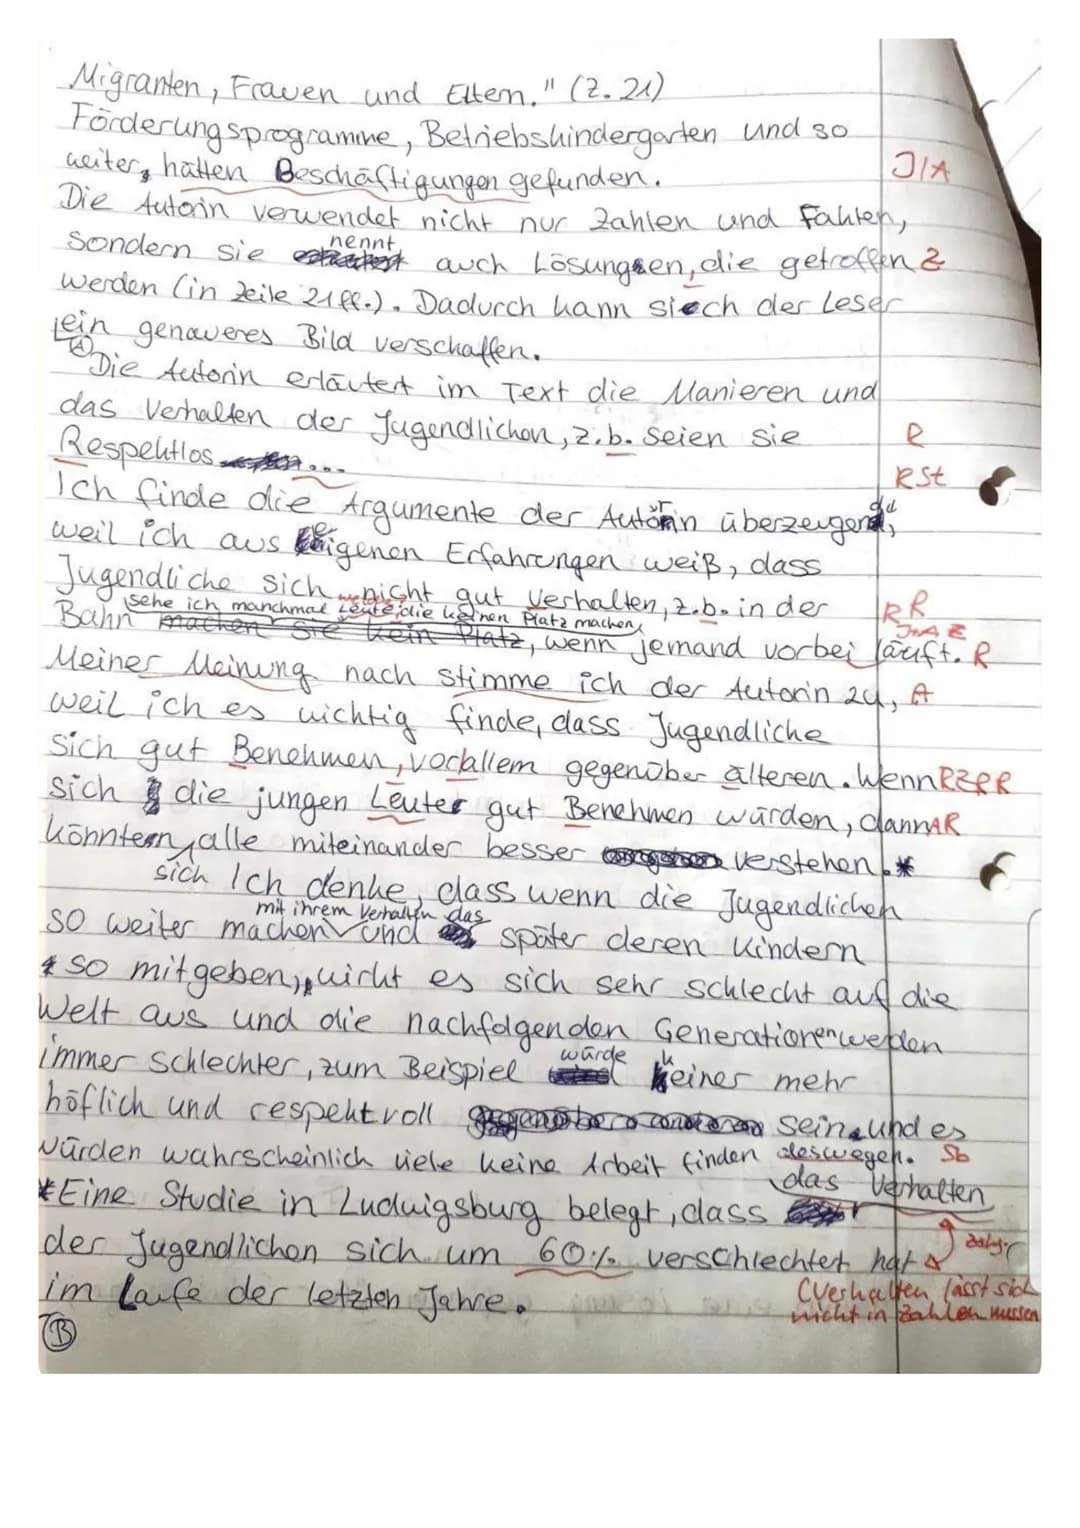 Migranten, Frauen und Eltern." (Z. 21)
Förderungsprogramme, Betriebskindergarten und so
weiter, hätten Beschäftigungen gefunden. J/A
Die Autorin verwendet nicht nur Zahlen und Fakten,
sondern sie nennt auch Lösungen, die getroffen Z
werden (in Zeile 21ff.). Dadurch kann sich der Leser
ein genaueres Bild verschaffen.
A
Die Autorin erläutert im Text die Manieren und
das Verhalten der Jugendlichen, z.b. seien sie R
Respektlos ... RSt
Ich finde die Argumente der Autorin überzeugend,
weil ich aus eigenen Erfahrungen weiß, dass
Jugendliche sich nicht gut Verhalten, z.b. in der R R
sehe ich manchmal Leute die keinen Platz machen,
Bahn machen sie kein Platz, wenn jemand vorbei läuft. R
Meiner Meinung nach stimme ich der Autorin zu, A
weil ich es wichtig finde, dass Jugendliche
sich gut Benehmen, vorallem gegenüber älteren. Wenn RZRR
sich die jungen Leute gut Benehmen würden, dann AR
könnten alle miteinander besser verstehen. *
sich Ich denke, dass wenn die Jugendlichen
mit ihrem Verhalten das
so weiter machen und später deren Kindern
* so mitgeben, wirkt es sich sehr schlecht auf die
Welt aus und die nachfolgenden Generationen werden
immer Schlechter, zum Beispiel würde keiner mehr
höflich und respektvoll sein und es
würden wahrscheinlich viele keine Arbeit finden deswegen. Sb
das Verhalten
* Eine Studie in Ludwigsburg belegt, dass
der Jugendlichen sich um 60% verschlechtert hat
im Laufe der letzten Jahre.
(Verhalten lässt sich
nicht in Zahlen messen
B